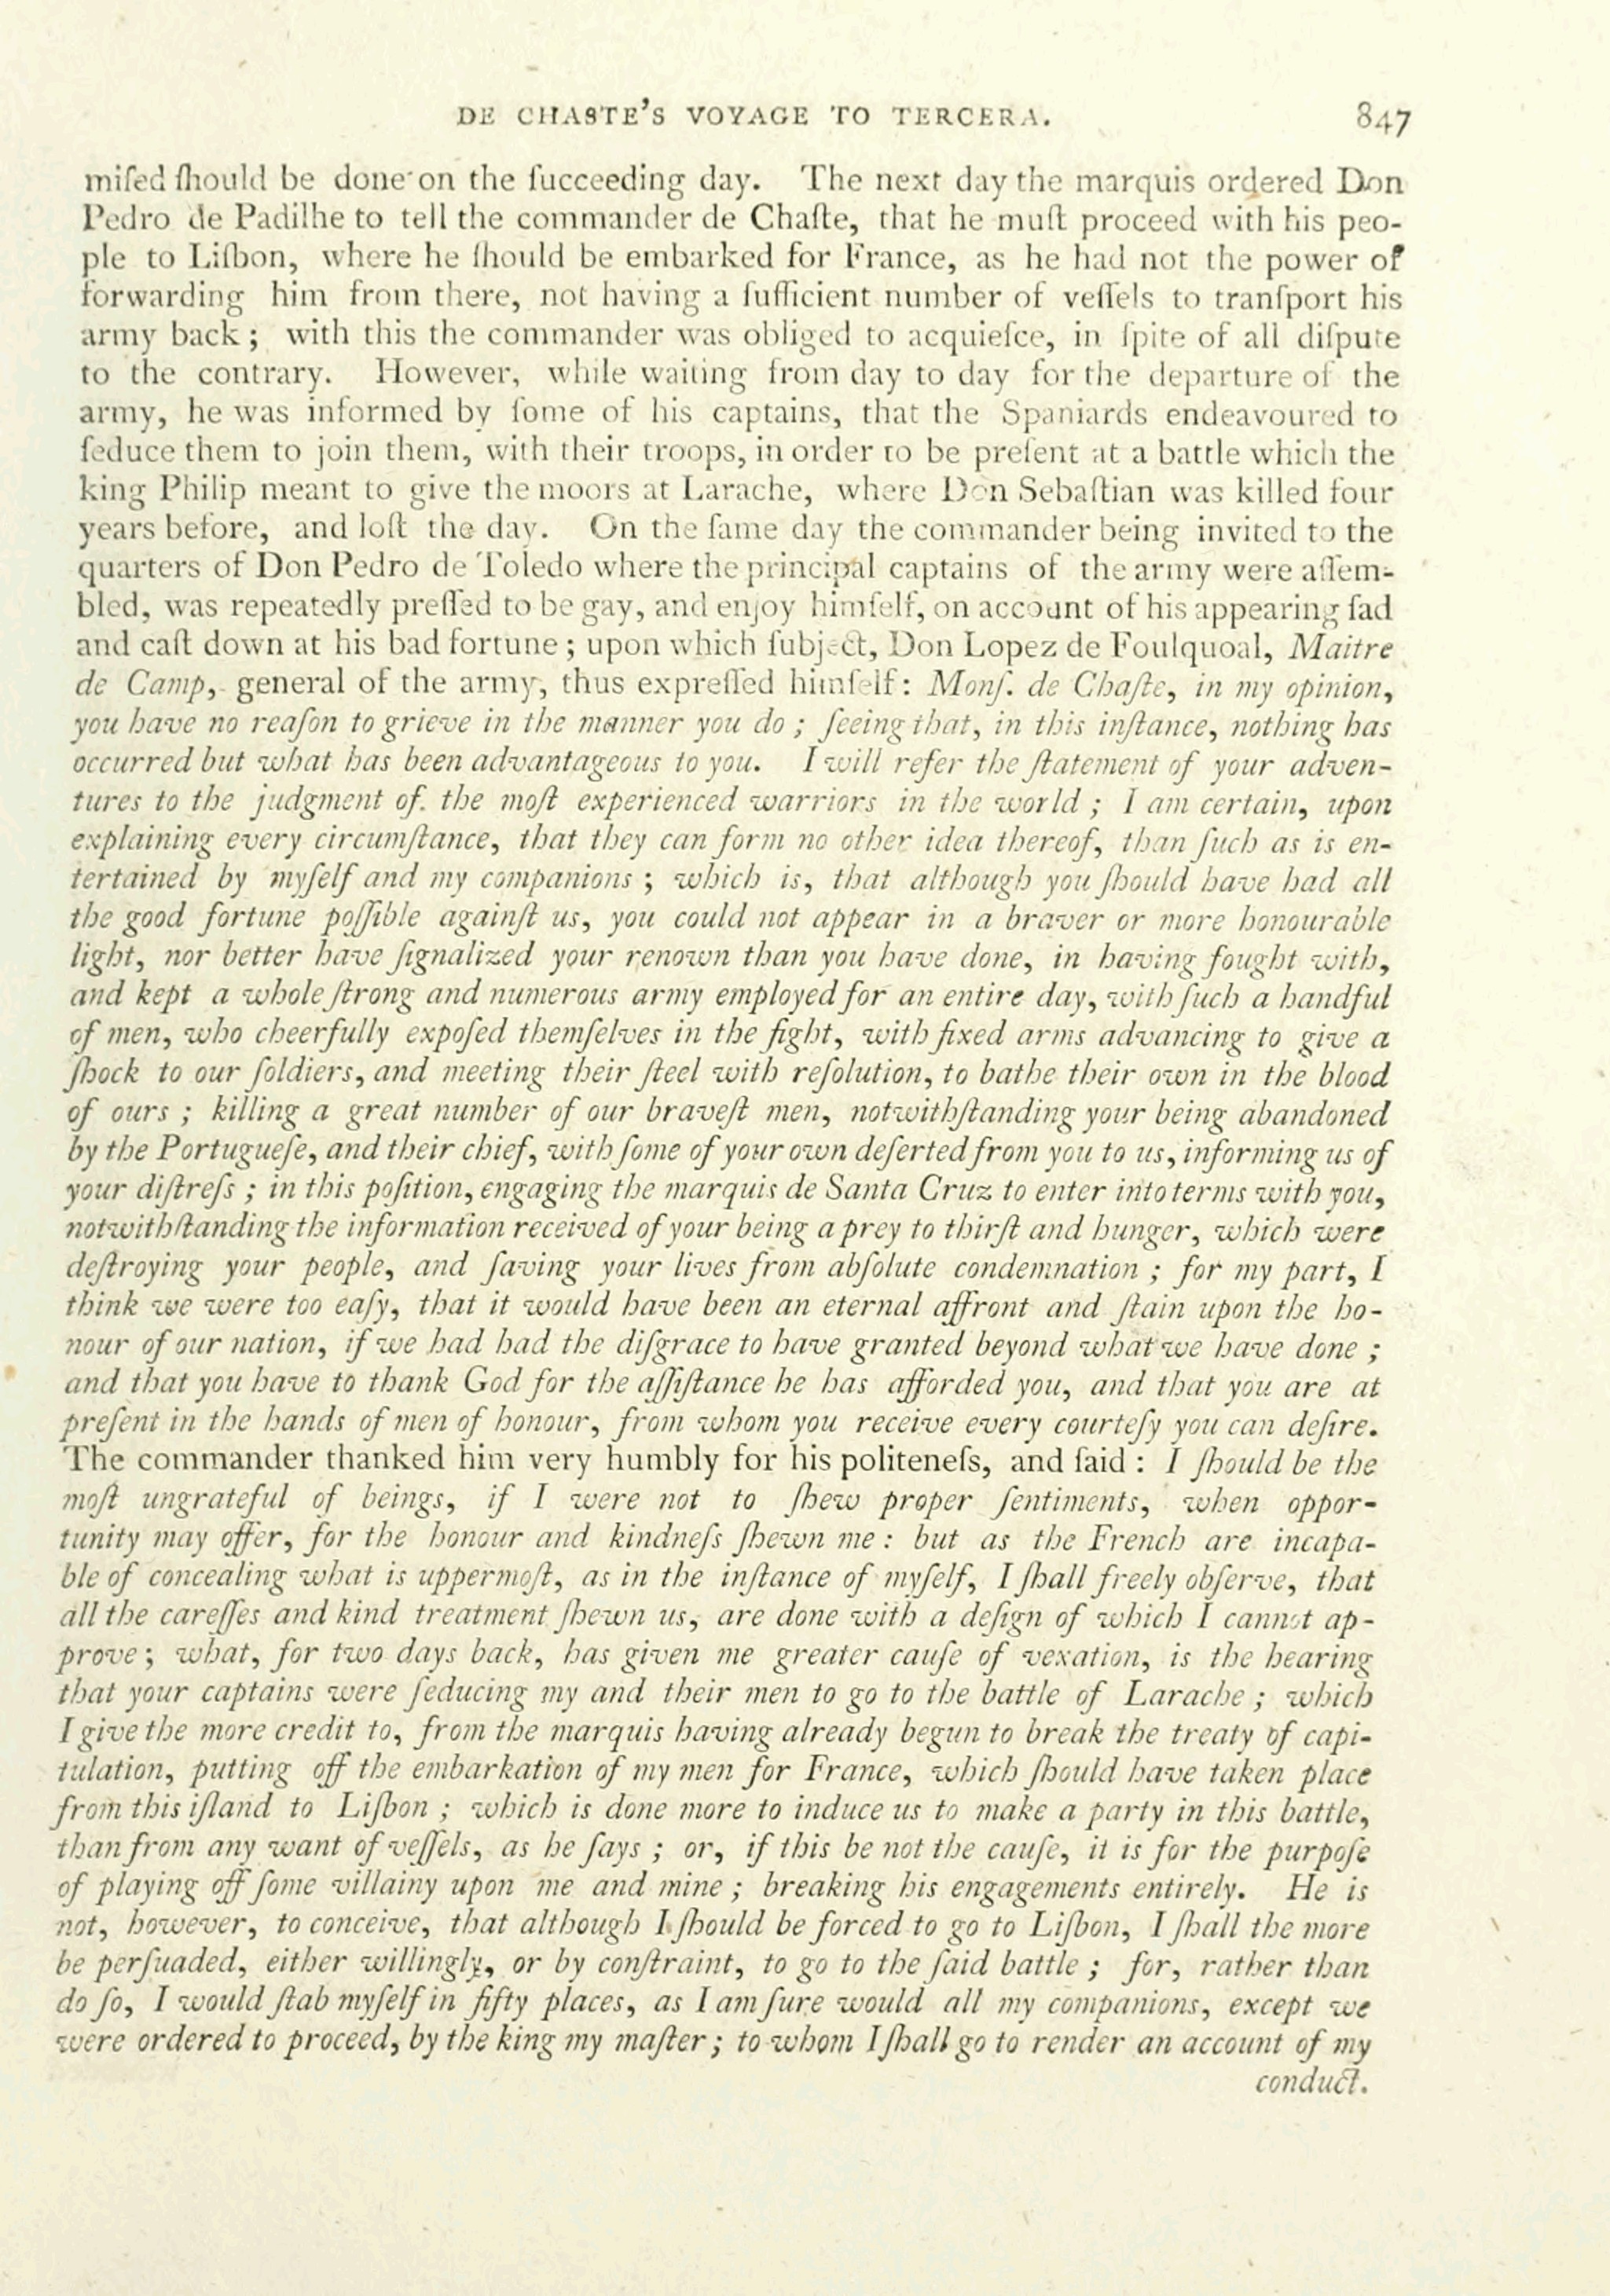 DE CHASTE'S VOYAGE TO TERCERA. 847
miſed ſhould be done on the ſucceeding day. The next day the marquis ordered Don
Pedro de Padilhe to tell the commander de Chaſte, that he muſt proceed with his peo-
ple to Liſbon, where he ſhould be embarked for France, as he had not the power of
forwarding him from there, not having a ſufficient number of veſſels to tranſport his
army back; with this the commander was obliged to acquieſce, in ſpite of all diſpute
to the contrary. However, while waiting from day to day for the departure of the
army, he was informed by ſome of his captains, that the Spaniards endeavoured to
ſeduce them to join them, with their troops, in order to be preſent at a battle which the
king Philip meant to give the moors at Larache, where Don Sebaſtian was killed four
years before, and loſt the day. On the ſame day the commander being invited to the
quarters of Don Pedro de Toledo where the principal captains of the army were aſſem-
bled, was repeatedly preſſed to be gay, and enjoy himſelf, on account of his appearing ſad
and caſt down at his bad fortune; upon which ſubject, Don Lopez de Foulquoal, Maitre
de Camp, general of the army, thus expreſſed himſelf: Monſ. de Chaſte, in my opinion,
you have no reaſon to grieve in the manner you do; ſeeing that, in this inſtance, nothing has
occurred but what has been advantageous to you. I will refer the ſtatement of your adven-
tures to the judgment of the moſt experienced warriors in the world; I am certain, upon
explaining every circumſtance, that they can form no other idea thereof, than ſuch as is en-
tertained by myſelf and my companions; which is, that although you ſhould have had all
the good fortune poſſible againſt us, you could not appear in a braver or more honourable
light, nor better have ſignalized your renown than you have done, in having fought with,
and kept a whole ſtrong and numerous army employed for an entire day, with ſuch a handful
of men, who cheerfully expoſed themſelves in the fight, with fixed arms advancing to give a
ſhock to our ſoldiers, and meeting their ſteel with reſolution, to bathe their own in the blood
of ours; killing a great number of our braveſt men, notwithſtanding your being abandoned
by the Portugueſe, and their chief, with ſome of your own deſerted from you to us, informing us of
your diſtreſs; in this poſition, engaging the marquis de Santa Cruz to enter into terms with you,
notwithſtanding the information received of your being a prey to thirſt and hunger, which were
deſtroying your people, and ſaving your lives from abſolute condemnation; for my part, I
think we were too eaſy, that it would have been an eternal affront and ſtain upon the ho-
nour of our nation, if we had had the diſgrace to have granted beyond what we have done;
and that you have to thank God for the aſſiſtance he has afforded you, and that you are at
preſent in the hands of men of honour, from whom you receive every courteſy you can deſire.
The commander thanked him very humbly for his politeneſs, and ſaid: I ſhould be the
moſt ungrateful of beings, if I were not to ſhew proper ſentiments, when oppor-
tunity may offer, for the honour and kindneſs ſhewn me: but as the French are incapa-
ble of concealing what is uppermoſt, as in the inſtance of myſelf, I ſhall freely obſerve, that
all the careſſes and kind treatment ſhewn us, are done with a deſign of which I cannot ap-
prove; what, for two days back, has given me greater cauſe of vexation, is the hearing
that your captains were ſeducing my and their men to go to the battle of Larache; which
I give the more credit to, from the marquis having already begun to break the treaty of capi-
tulation, putting off the embarkation of my men for France, which ſhould have taken place
from this iſland to Liſbon; which is done more to induce us to make a party in this battle,
than from any want of veſſels, as he ſays; or, if this be not the cauſe, it is for the purpoſe
of playing off ſome villainy upon me and mine; breaking his engagements entirely. He is
not, however, to conceive, that although I ſhould be forced to go to Liſbon, I ſhall the more
be perſuaded, either willingly, or by conſtraint, to go to the ſaid battle; for, rather than
do ſo, I would ſtab myſelf in fifty places, as I am ſure would all my companions, except we
were ordered to proceed, by the king my maſter; to whom I ſhall go to render an account of my
conduct.